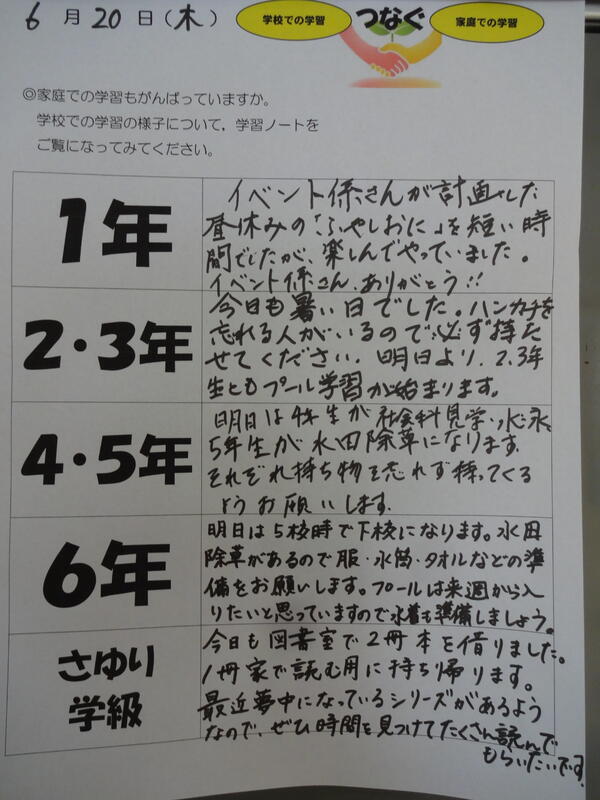 6月20日(木)
学校での学習
つなぐ
家庭での学習
◎家庭での学習もがんばっていますか。
学校での学習の様子について，学習ノートを
ご覧になってみてください。
1年
イベント係さんが計画した
昼休みの「ふやしおに」を短い時
間でしたが、楽しんでやっていました。
イベント係さん、ありがとう!!
2・3年
今日も暑い日でした。ハンカチを
忘れる人がいるので必ず持た
せてください。明日より、2.3年
生ともプール学習が始まります。
4・5年
明日は4年生が社会科見学・水泳
5年生が水田除草になります。
それぞれ持ち物を忘れず持ってくる
ようお願いします。
6年
明日は5校時で下校になります。水田
除草があるので服・水筒・タオルなどの準
備をお願いします。プールは来週から入
りたいと思っていますので水着も準備しましょう。
さゆり
学級
今日も図書室で2冊本を借りました。
1冊家で読む用に持ち帰ります。
最近夢中になっているシリーズがあるよう
なので、ぜひ時間を見つけてたくさん読んで
もらいたいです。